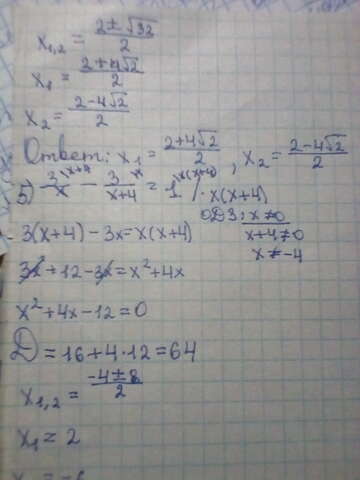 x₁,₂ = (2 ± √32)/2
x₁ = (2 + 4√2)/2
x₂ = (2 - 4√2)/2
Ответ: x₁ = (2 + 4√2)/2 , x₂ = (2 - 4√2)/2
5) 3/x ^(x+4) - 3/(x+4) ^x = 1 ^x(x+4) / · x(x+4)
ОДЗ: x ≠ 0
3(x+4) - 3x = x(x+4)
x+4 ≠ 0
x ≠ -4
3x + 12 - 3x = x² + 4x
x² + 4x - 12 = 0
D = 16 + 4·12 = 64
x₁,₂ = (-4 ± 8)/2
x₁ = 2